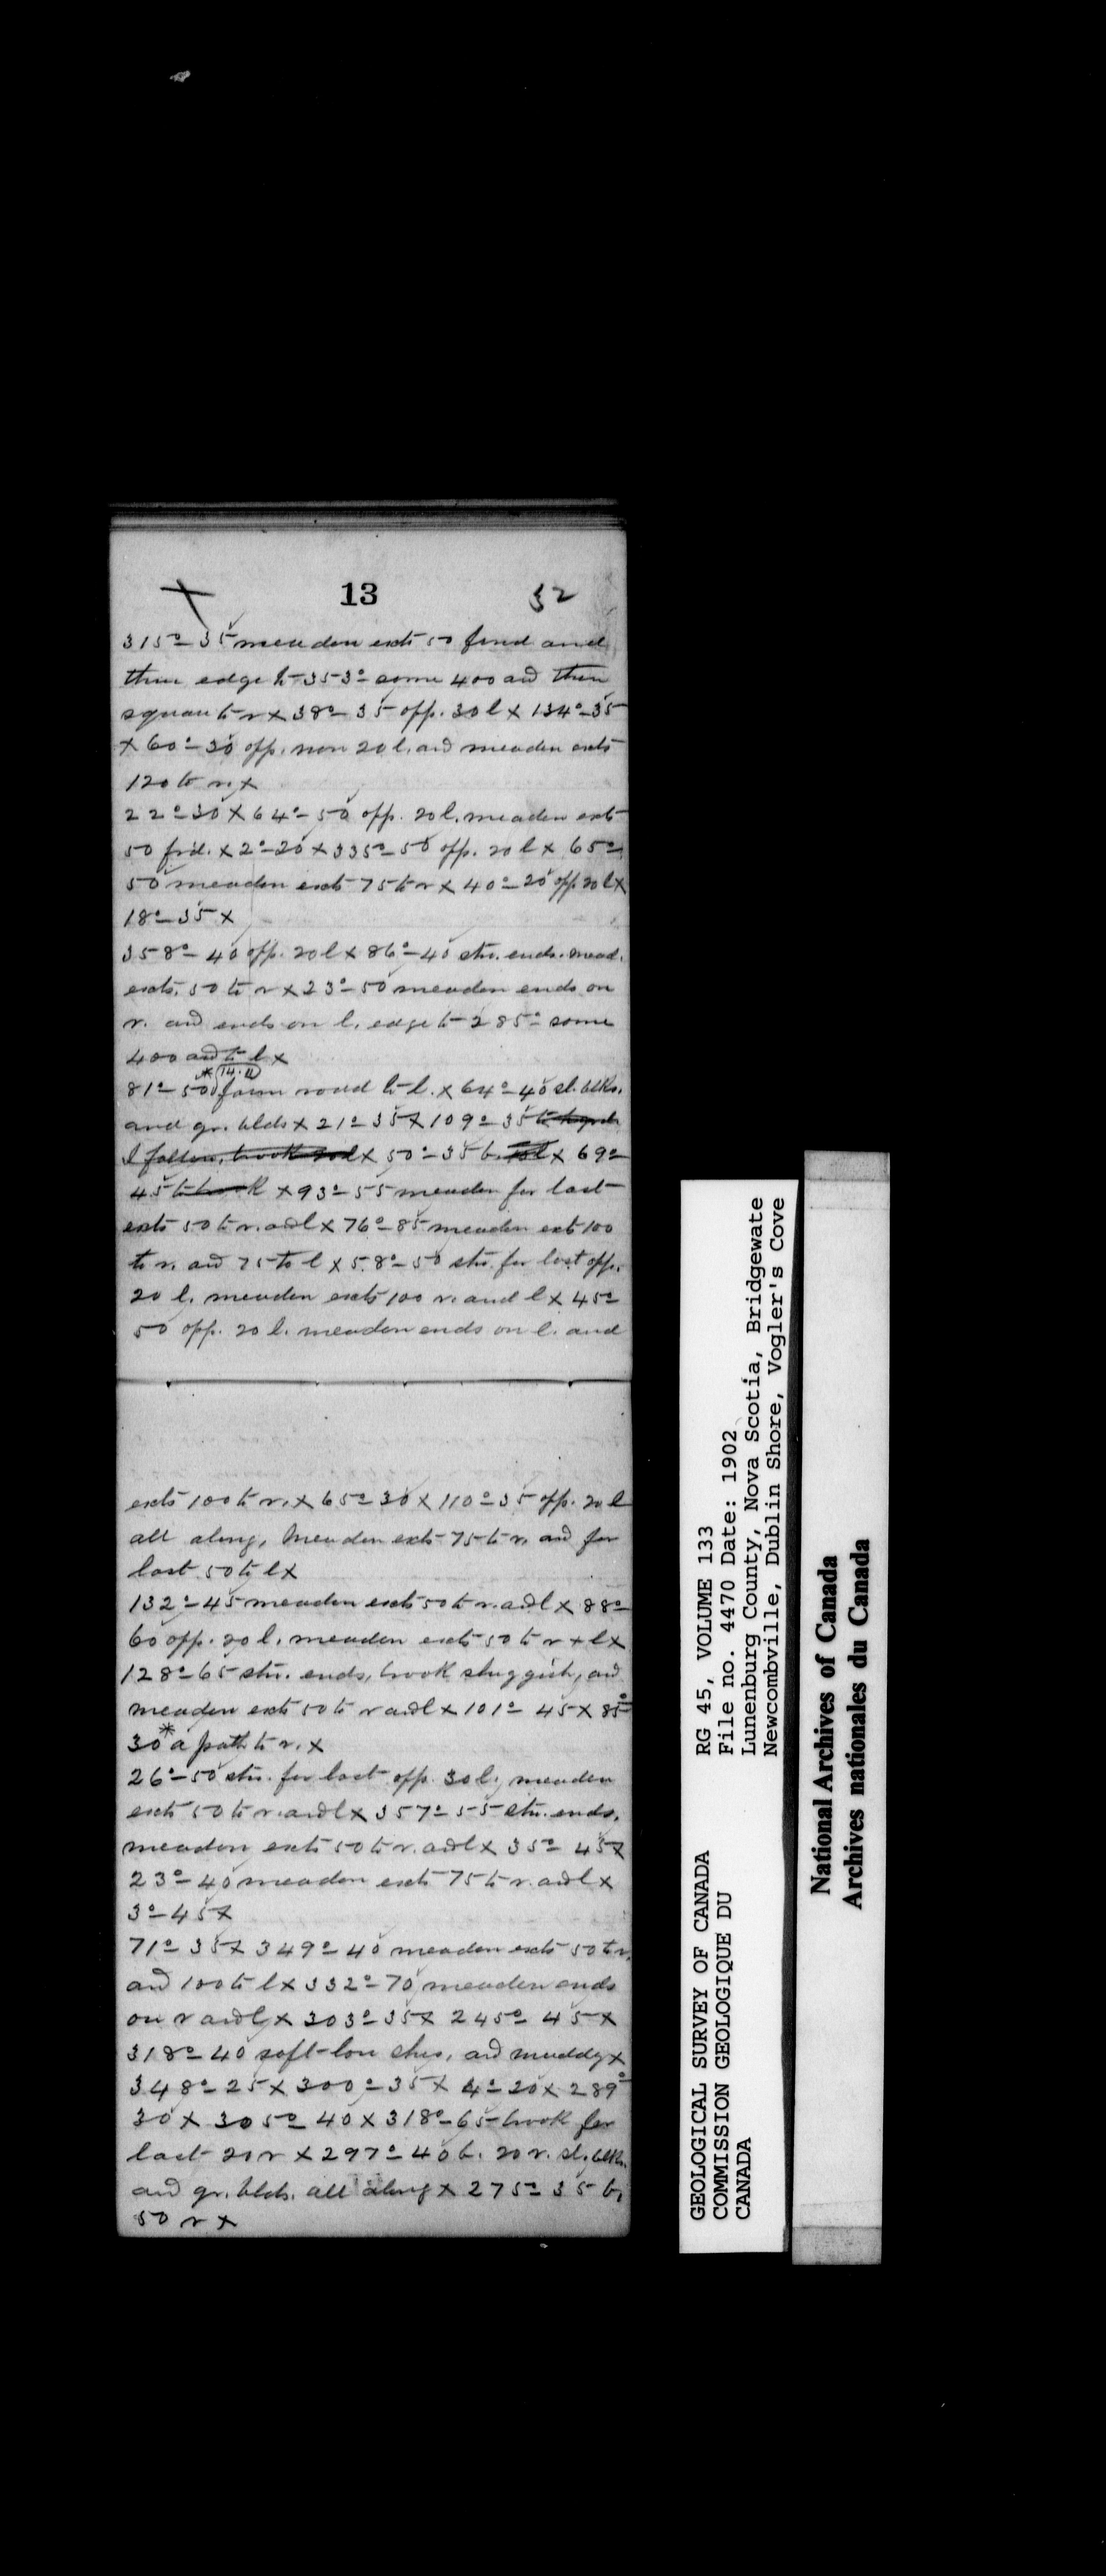 13 32
315°- 35 meadow exts 50 frwd and
then edge to 353° some 400 and then
square to r x 38°- 35 opp. 30 l x 134°- 35
x 60°- 30 opp. now 20 l. and meadow exts
120 to r. x
22°- 30 x 64°- 50 opp. 20 l. meadow exts
50 frd. x 2°- 20 x 335°- 50 opp. 20 l x 65°-
50 meadow exts 75 to r x 40°- 20 opp 20 l x
18°- 35 x
358°- 40 opp. 20 l x 86°- 40 str. ends. mead.
exts. 50 to r x 23°- 50 meadow ends on
r. and ends on l. edge to 285° some
400 and to l x
* 14.11
81°- 50 farm road to l. x 64°- 40 sl. blks.
and gr. blds x 21°- 35 x 109°- 35
I follow, brook 20 l x 50°- 35 b. x 69°-
45 to x 93°- 55 meadow for last
exts 50 to r. and l x 76°- 85 meadow ext 100
to r. and 75 to l x 58°- 50 str. for last opp.
20 l. meadow exts 100 r. and l x 45°-
50 opp. 20 l. meadow ends on l. and
exts 100 to r. x 65°- 30 x 110°- 35 opp. 20 l
all along, meadow exts 75 to r. and for
last 50 to l x
132°- 45 meadow exts 50 to r. and l x 88°-
60 opp. 20 l. meadow exts 50 to r + l x
128°- 65 str. ends, brook sluggish, and
meadow exts 50 to r and l x 101°- 45 x 85°-
30 * a path to r. x
26°- 50 str. for last opp. 30 l, meadow
exts 50 to r. and l x 357°- 55 str. ends,
meadow exts 50 to r. and l x 35°- 45 x
23°- 40 meadow exts 75 to r. and l x
3°- 45 x
71°- 35 x 349°- 40 meadow exts 50 to r.
and 100 to l x 332°- 70 meadow ends
on r and l x 303°- 35 x 245°- 45 x
318°- 40 soft-low shrs, and muddy x
348°- 25 x 300°- 35 x 4°- 20 x 289°-
30 x 305°- 40 x 318°- 65 brook for
last 20 r x 297°- 40 b. 20 r. sl. blks.
and gr. blds. all along x 275°- 35 b.
50 r x
GEOLOGICAL SURVEY OF CANADA
COMMISSION GEOLOGIQUE DU
CANADA
RG 45, VOLUME 133
File no. 4470 Date: 1902
Lunenburg County, Nova Scotia, Bridgewate
Newcombville, Dublin Shore, Vogler's Cove
National Archives of Canada
Archives nationales du Canada